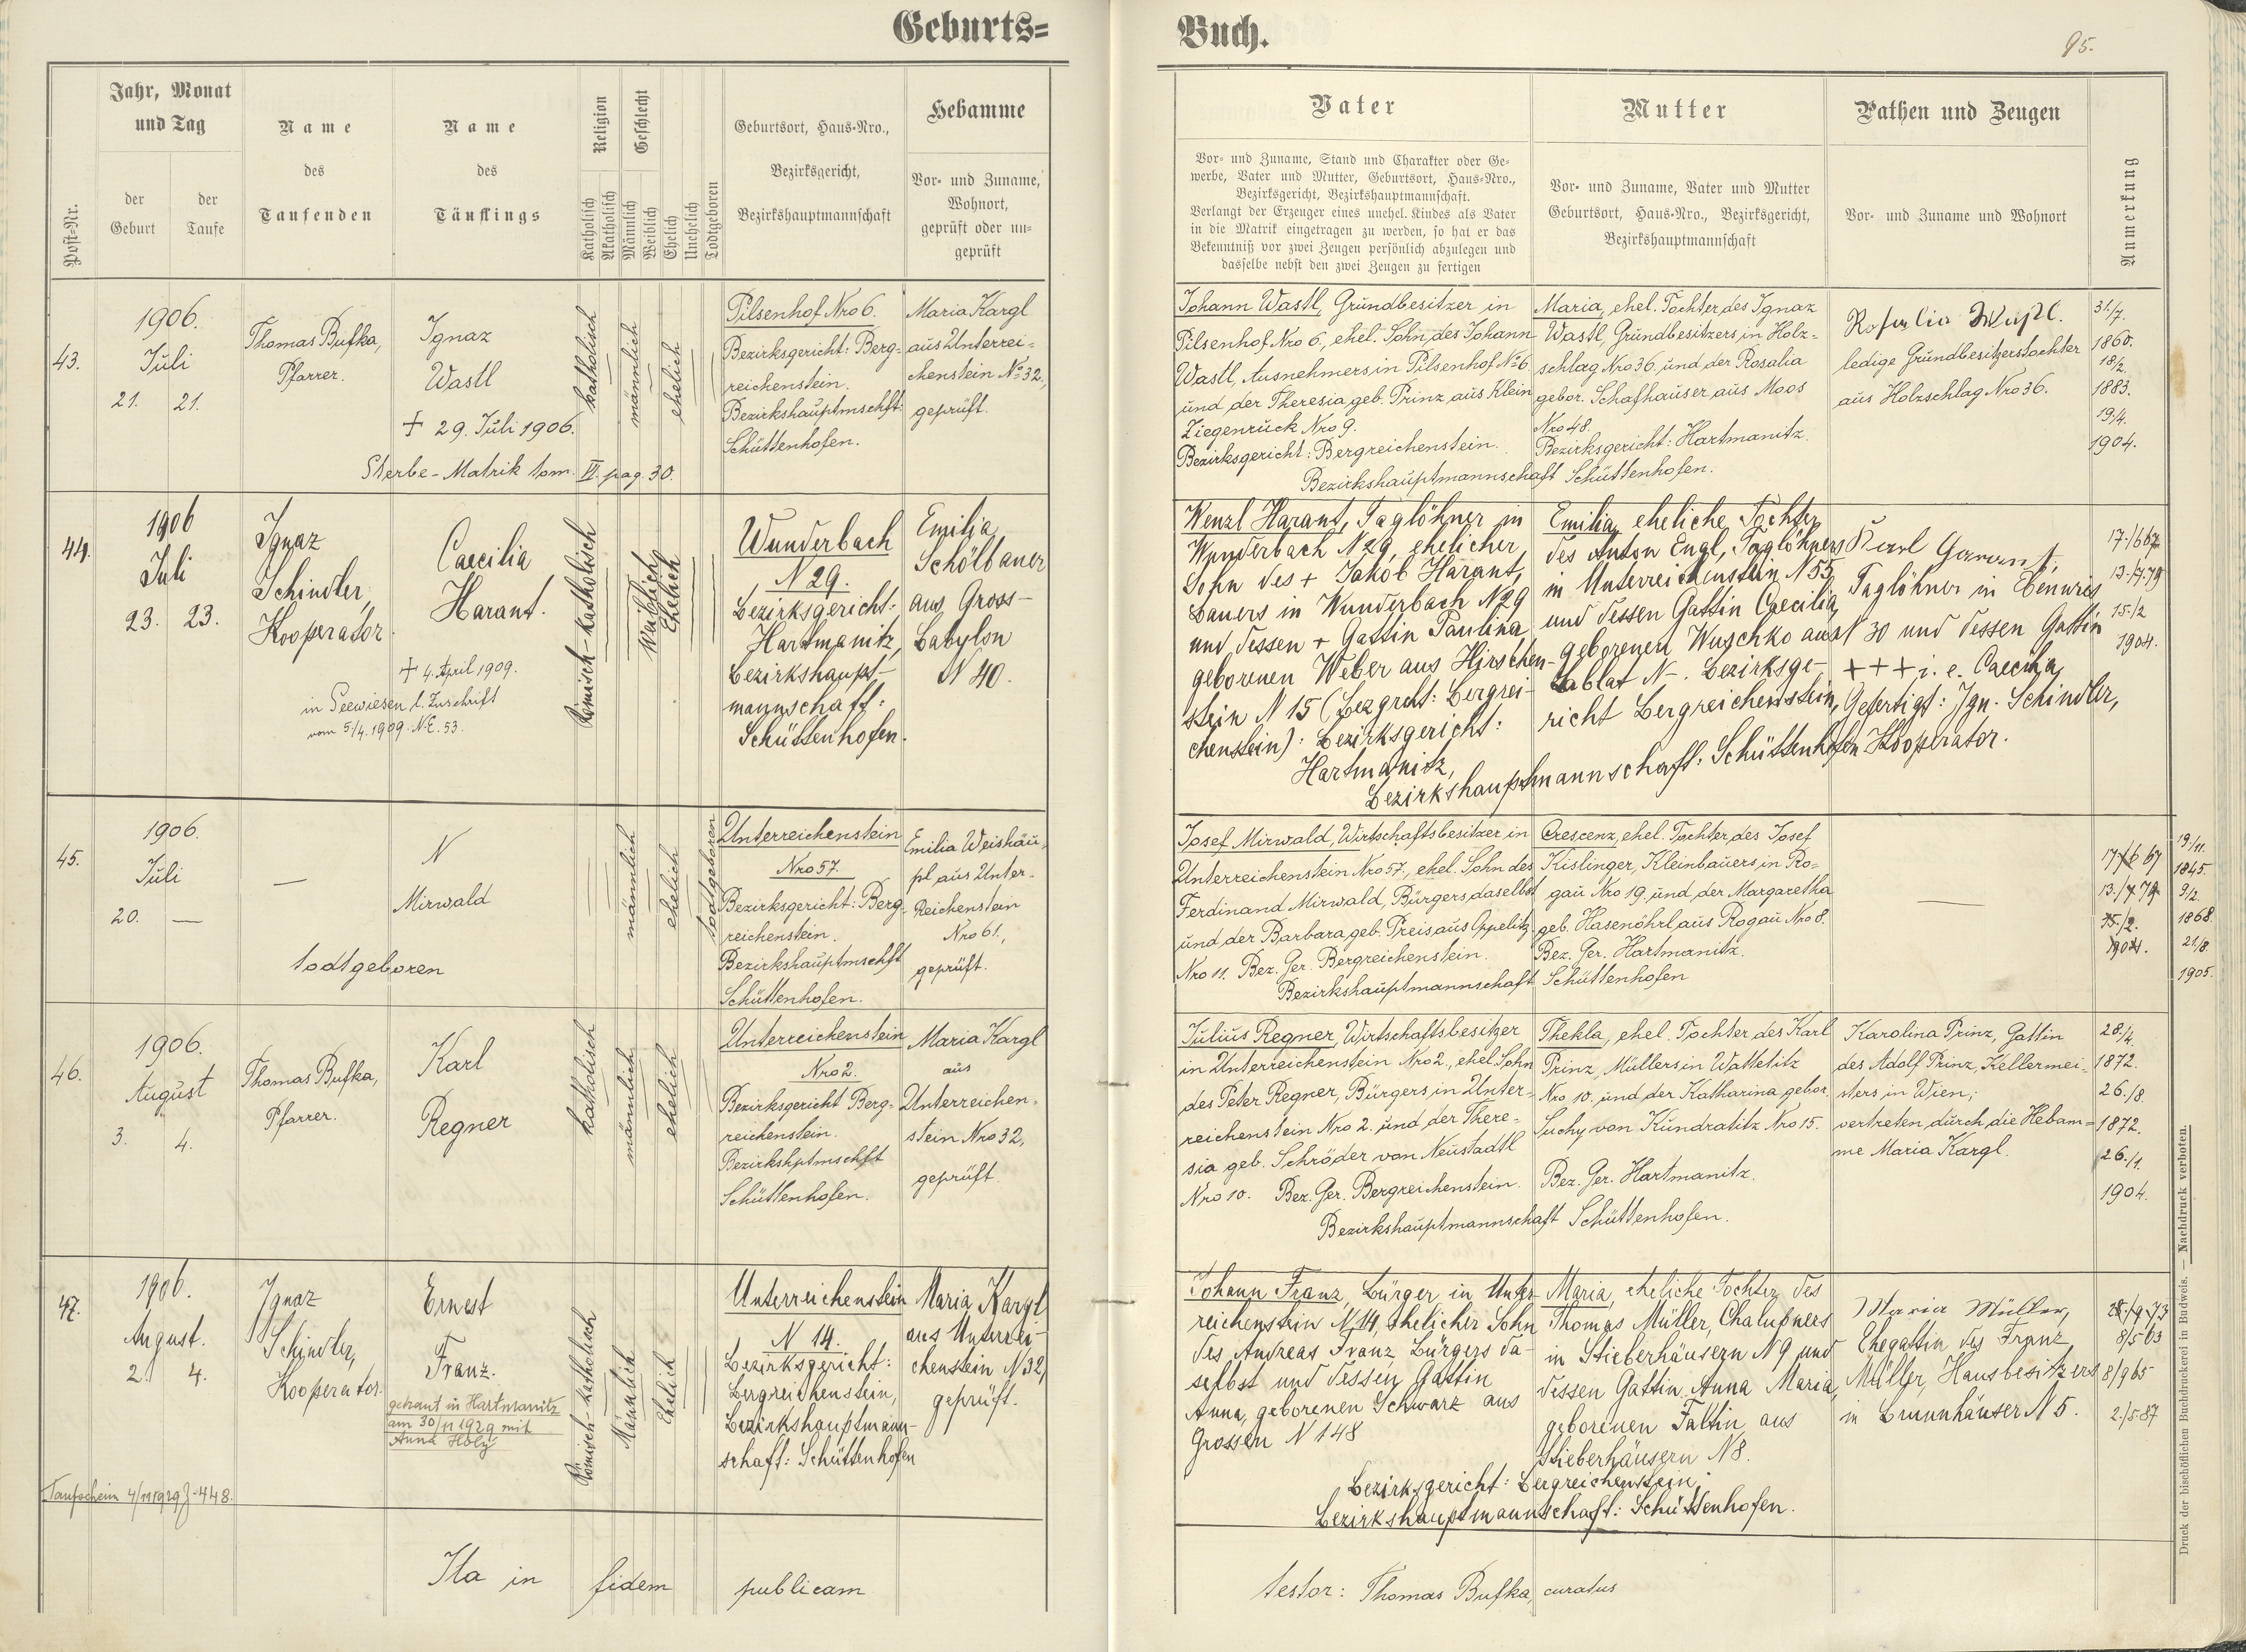 Geburts=
Buch.
95.
Post=Nr.
Jahr, Monat
und Tag
der
Geburt
der
Taufe
Name
des
Taufenden
Name
des
Täuflings
Religion
Katholisch
Akatholisch
Geschlecht
Männlich
Weiblich
Ehelich
Unehelich
Todtgeboren
Geburtsort, Haus=Nro.,
Bezirksgericht,
Bezirkshauptmannschaft
Hebamme
Vor= und Zuname,
Wohnort,
geprüft oder un=
geprüft
Vater
Vor= und Zuname, Stand und Charakter oder Ge=
werbe, Vater und Mutter, Geburtsort, Haus=Nro.,
Bezirksgericht, Bezirkshauptmannschaft.
Verlangt der Erzeuger eines unehel. Kindes als Vater
in die Matrik eingetragen zu werden, so hat er das
Bekenntniß vor zwei Zeugen persönlich abzulegen und
dasselbe nebst den zwei Zeugen zu fertigen
Mutter
Vor= und Zuname, Vater und Mutter
Geburtsort, Haus=Nro., Bezirksgericht,
Bezirkshauptmannschaft
Pathen und Zeugen
Vor= und Zuname und Wohnort
Anmerkung
43.
1906.
Juli
21. 21.
Thomas Bufka,
Pfarrer.
Ignaz
Wastl
+ 29. Juli 1906.
Sterbe-Matrik tom. VI. pag. 30.
katholisch
männlich
ehelich
Pilsenhof Nro 6.
Bezirksgericht: Berg=
reichenstein.
Bezirkshauptmschft:
Schüttenhofen.
Maria Kargl
aus Unterrei=
chenstein No 32,
geprüft.
Johann Wastl, Grundbesitzer in
Pilsenhof Nro 6., ehel. Sohn des Johann
Wastl, Ausnehmers in Pilsenhof No 6.
und der Theresia geb. Prinz aus Klein
Ziegenruck Nro 9.
Bezirksgericht: Bergreichenstein.
Maria, ehel. Tochter des Ignaz
Wastl, Grundbesitzers in Holz=
schlag Nro 36. und der Rosalia
gebor. Schafhauser aus Moos
Nro 48.
Bezirksgericht: Hartmanitz.
Bezirkshauptmannschaft Schüttenhofen.
Rosalia Wastl.
ledige Grundbesitzerstochter
aus Holzschlag Nro 36.
31/7.
1860.
18/2.
1883.
19/4.
1904.
44.
1906
Juli
23. 23.
Ignaz
Schindler,
Kooperator.
Caecilia
Harant.
+ 4. April 1909.
in Seewiesen l. Zuschrift
vom 5/4. 1909. N.E. 53.
Römisch-katholisch
Weiblich
Ehelich
Wunderbach
N 29.
Bezirksgericht:
Hartmanitz,
Bezirkshaupt-
mannschaft:
Schüttenhofen.
Emilia
Schölbauer
aus Gross-
Babylon
N 40.
Wenzl Harant, Taglöhner in
Wunderbach N 29, ehelicher
Sohn des + Jakob Harant,
Bauers in Wunderbach N 29
und dessen + Gattin Paulina
geborenen Weber aus Hirschen-
stein N 15 (Bezgrcht: Bergrei-
chenstein): Bezirksgericht:
Hartmanitz,
Emilia, eheliche Tochter
des Anton Engl, Taglöhners
in Unterreichenstein N 55
und dessen Gattin Caecilia,
geborenen Wuschko aus
Sablat N -. Bezirksge-
richt Bergreichenstein,
Bezirkshauptmannschaft: Schüttenhofen
Karl Harant,
Taglöhner in
N 30 und dessen Gattin
+++ i. e. Caecilia,
Gefertigt: Ign. Schindler,
Kooperator.
17./6 67
13./7. 79
15./2
1904.
45.
1906.
Juli
20. —
—
N
Mirwald
todtgeboren
männlich
ehelich
todtgeboren
Unterreichenstein
Nro 57.
Bezirksgericht: Berg=
reichenstein.
Bezirkshauptmschft
Schüttenhofen.
Emilia Weishäu=
pl aus Unter-
Reichenstein
Nro 61.,
geprüft.
Josef Mirwald, Wirtschaftsbesitzer in
Unterreichenstein Nro 57., ehel. Sohn des
Ferdinand Mirwald, Bürgers daselbst
und der Barbara geb. Preis aus Oppelitz
Nro 11. Bez. Ger. Bergreichenstein.
Crescenz, ehel. Tochter des Josef
Kislinger, Kleinbauers in Ro=
gau Nro 19. und der Margaretha
geb. Hasenöhrl aus Rogau Nro 8.
Bez. Ger. Hartmanitz.
Bezirkshauptmannschaft Schüttenhofen
—
17/6 67
13./7. 79
15./2.
1904.
19./11.
1845.
9/2.
1868.
21/8.
1905.
46.
1906.
August
3. 4.
Thomas Bufka,
Pfarrer.
Karl
Regner
katholisch
männlich
ehelich
Unterreichenstein
Nro 2.
Bezirksgericht Berg=
reichenstein.
Bezirkshptmschft
Schüttenhofen.
Maria Kargl
aus
Unterreichen=
stein Nro 32,
geprüft.
Julius Regner, Wirtschaftsbesitzer
in Unterreichenstein Nro 2., ehel. Sohn
des Peter Regner, Bürgers in Unter=
reichenstein Nro 2. und der There=
sia geb. Schröder von Neustadtl
Nro 10. Bez. Ger. Bergreichenstein.
Thekla, ehel. Tochter des Karl
Prinz, Müllers in Watetitz
Nro 10. und der Katharina gebor.
Suchy von Kundratitz Nro 15.
Bez. Ger. Hartmanitz.
Bezirkshauptmannschaft Schüttenhofen.
Karolina Prinz, Gattin
des Adolf Prinz, Kellermei=
sters in Wien;
vertreten durch die Hebam=
me Maria Kargl.
28./4.
1872.
26./8.
1872.
26./1.
1904.
47.
1906.
August.
2. 4.
Ignaz
Schindler,
Kooperator.
Ernest
Franz.
getraut in Hartmanitz
am 30/11 1929 mit
Anna Holy
Taufschein 4/11 1929 Z. 448.
Römisch-katholisch
Männlich
Ehelich
Unterreichenstein
N 14.
Bezirksgericht:
Bergreichenstein,
Bezirkshauptmann-
schaft: Schüttenhofen
Maria Kargl
aus Unterrei-
chenstein N 32,
geprüft.
Johann Franz, Bürger in Unter-
reichenstein N 14, ehelicher Sohn
des Andreas Franz, Bürgers da-
selbst und dessen Gattin
Anna, geborenen Schwarz aus
Grossen N 148
Maria, eheliche Tochter des
Thomas Müller, Chalupners
in Stieberhäusern N 9 und
dessen Gattin Anna Maria,
geborenen Faltin aus
Stieberhäusern N 8.
Bezirksgericht: Bergreichenstein;
Bezirkshauptmannschaft: Schüttenhofen.
Maria Müller,
Ehegattin des Franz
Müller, Hausbesitzers
in Brunnhäuser N 5.
28./9. 73
8/5 63
8/9 65
2./5. 87
Ita in fidem publicam
testor: Thomas Bufka, curatus
Druck der bischöflichen Buchdruckerei in Budweis. — Nachdruck verboten.